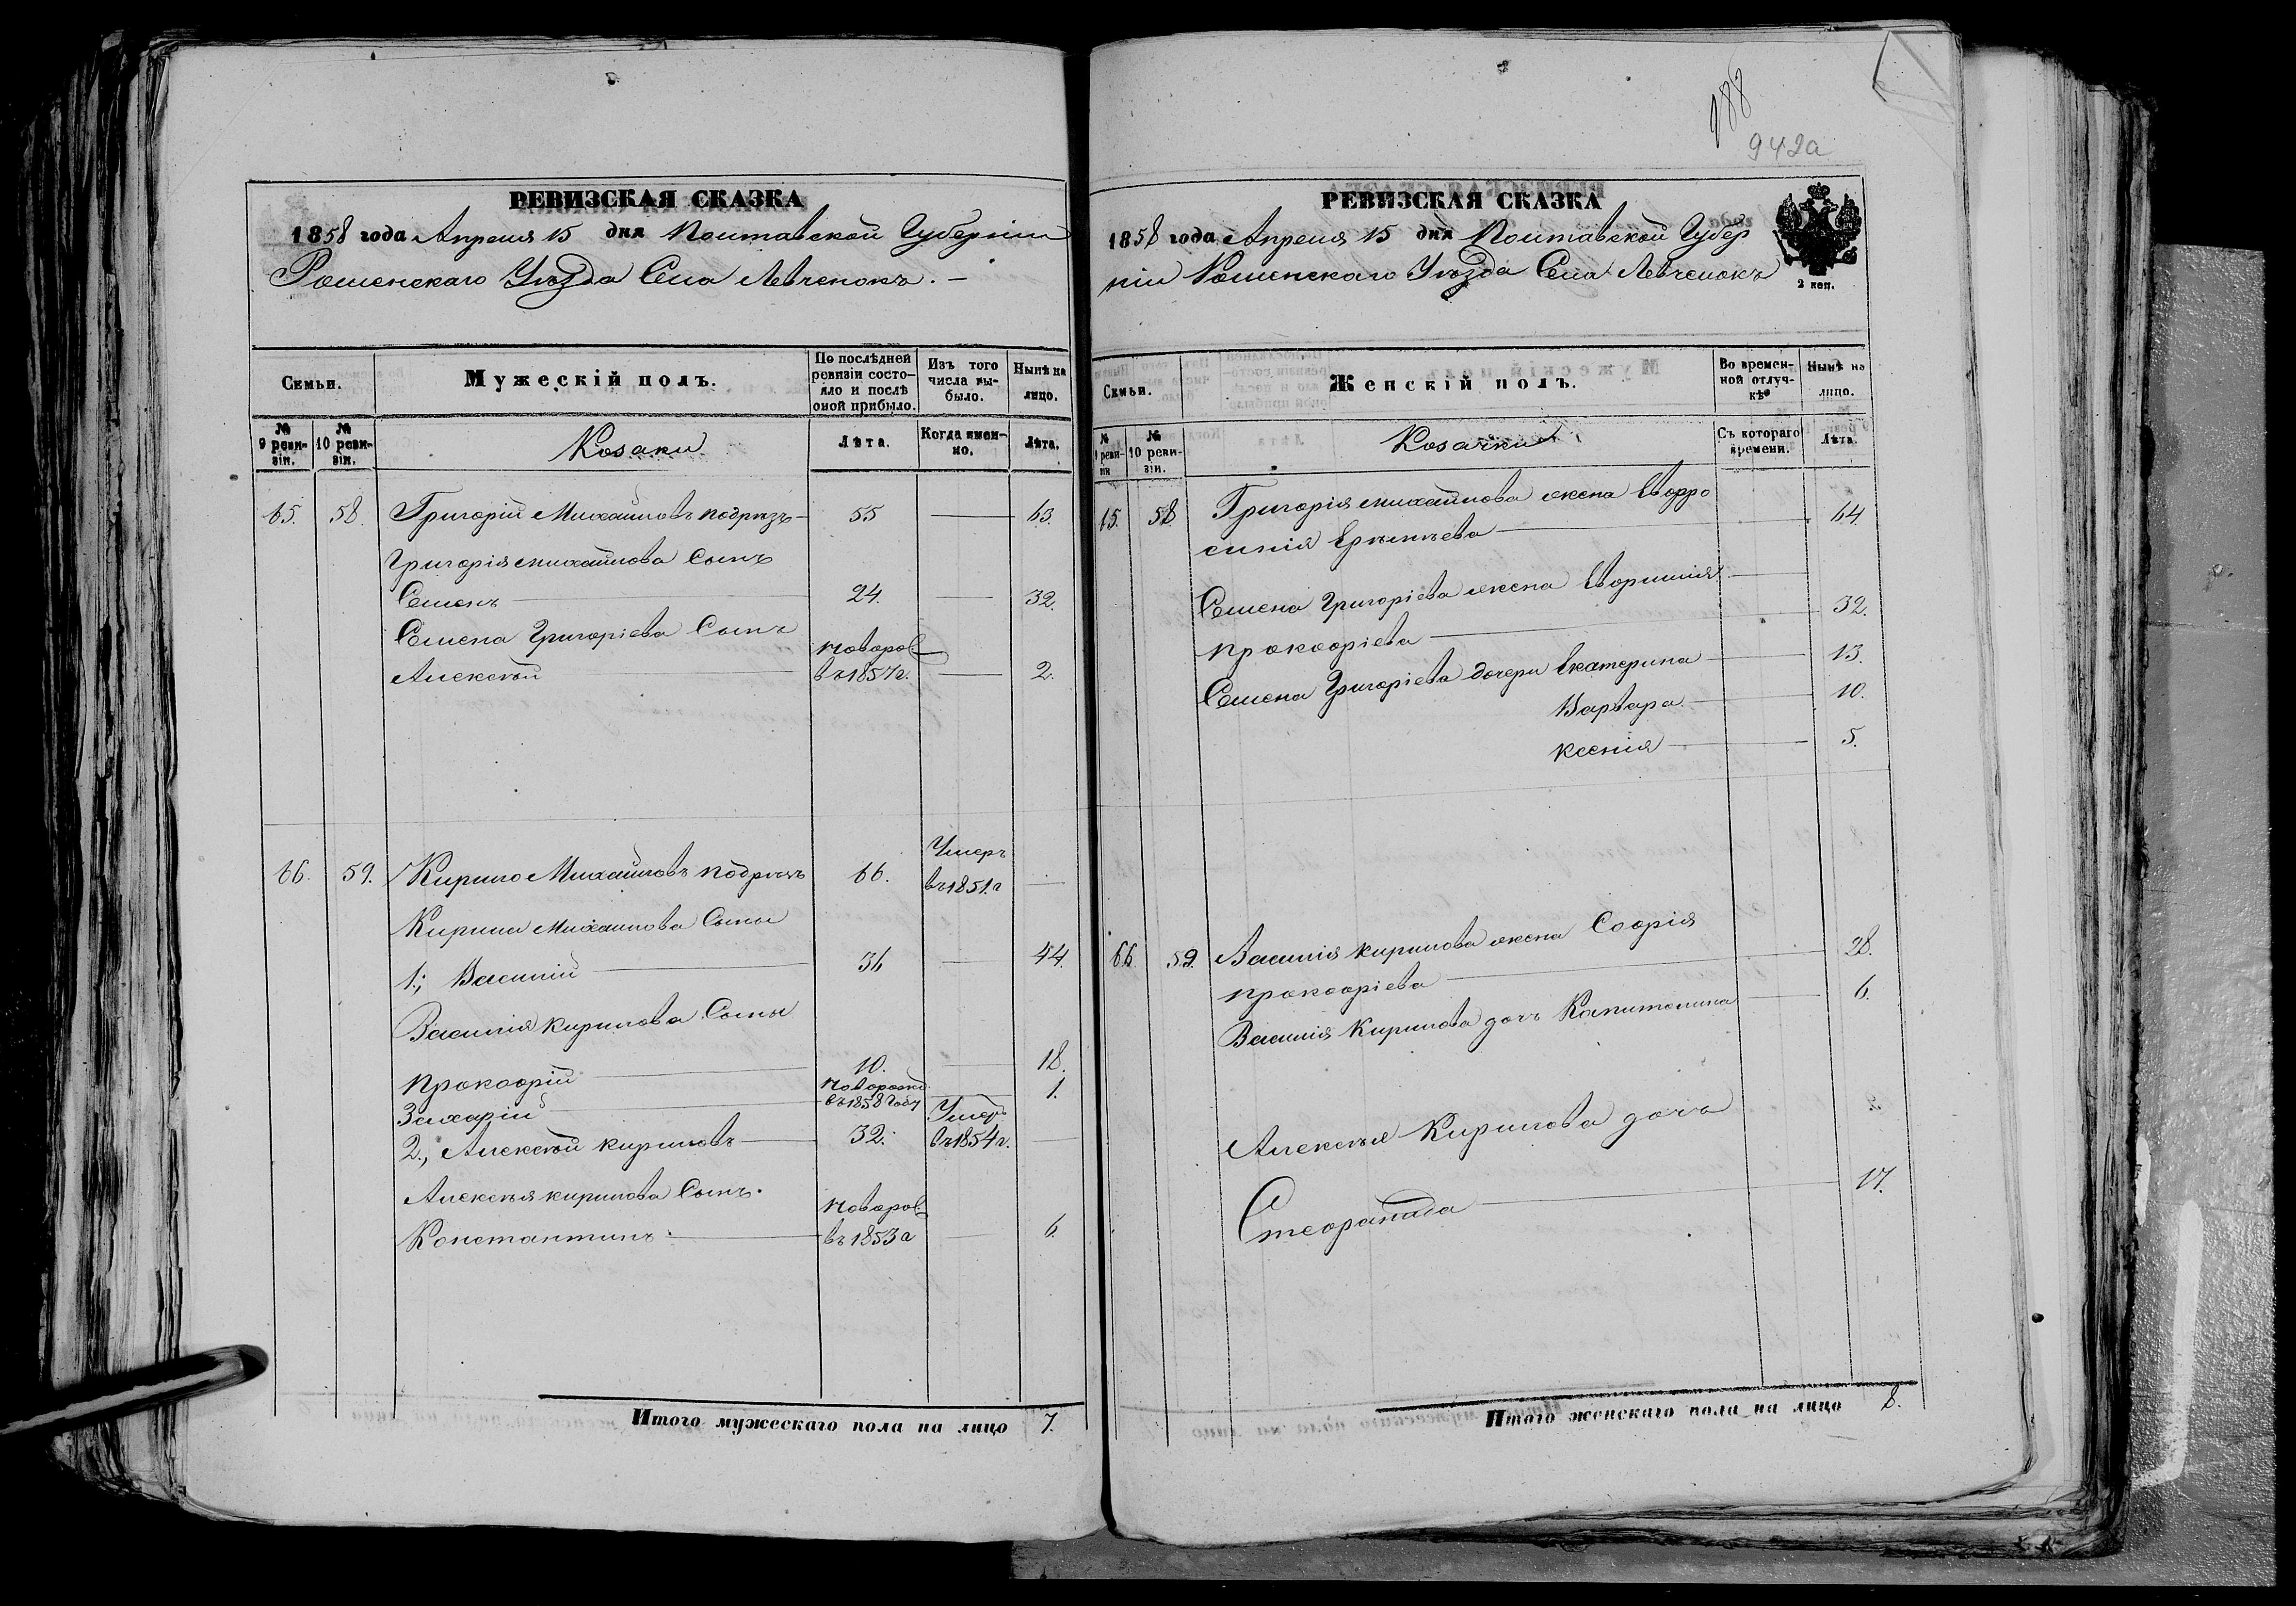 188
942а
РЕВИЗСКАЯ СКАЗКА
1858 года Апреля 15 дня Полтавской Губерніи
Роменскаго Уѣзда Села Левченокъ. —
Семьи.
Мужескій полъ.
По послѣдней ревизіи состояло и послѣ оной прибыло.
Изъ того числа выбыло.
Нынѣ на лицо.
№ 9 ревизіи.
№ 10 ревизіи.
Козаки
Лѣта.
Когда именно.
Лѣта.
65. 58. Григорій Михайловъ Подрѣзъ 55 — 63.
Григорія Михайлова Сынъ
Семенъ 24. — 32.
Семена Григоріева Сынъ
Алексѣй новорож. въ 1857 г. — 2.
66. 59. Кирило Михайловъ Подрѣзъ 66. Умеръ въ 1851 г —
Кирила Михайлова Сыны
1.; Василій 36 — 44.
Василія Кирилова Сыны
Прокофій 10. — 18.
Захарій новорожд. въ 1858 году — 1.
2., Алексѣй Кириловъ 32. Умеръ въ 1854 г. —
Алексѣя Кирилова Сынъ.
Константинъ новорож. въ 1853 г — 6.
Итого мужескаго пола на лицо 7.
РЕВИЗСКАЯ СКАЗКА
1858 года Апреля 15 дня Полтавской Губер
ніи Роменскаго Уѣзда Села Левченокъ
2 коп.
Семьи.
Женскій полъ.
Во временной отлучкѣ
Нынѣ на лицо.
№ 9 ревизіи
№ 10 ревизіи.
Козачки
Съ котораго времени.
Лѣта.
65. 58. Григорія Михайлова жена Евфро
синія 64.
Семена Григоріева жена
Прокофіева 32.
Семена Григоріева дочери Екатерина 13.
Варвара 10.
Ксенія 5.
66. 59. Василія Кирилова жена Софія
Прокофіева 28.
Василія Кирилова дочь Капитолина 6.
Алексѣя Кирилова дочь
Стефанида 17.
Итого женскаго пола на лицо 8.